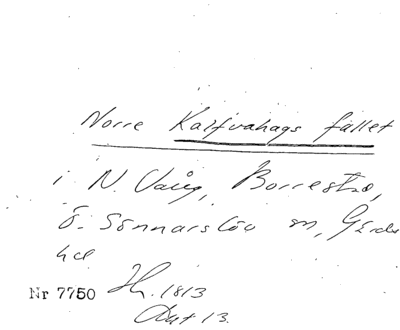 Norre Kalfvahags fället
i N. Vång, Borrestad,
Ö. Sönnarslöv m, Gärds
hd
Nr 7750 Jh. 1813
Akt 13.